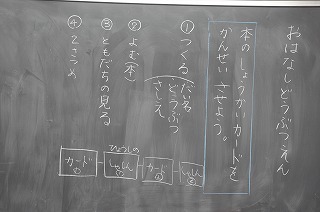 おはなしどうぶつえん
本のしょうかいカードを
かんせいさせよう。
①つくる
だ名
どうぶつ
さしえ
②よむ(本)
③ともだちの見る
④2さつめ
ひょうしの
カードの
しゃしんの
カードの
しゃしん